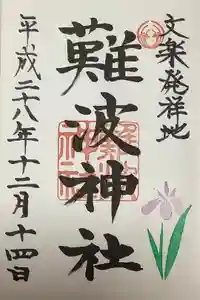 文楽発祥地
難波神社
平成二十八年十二月十四日